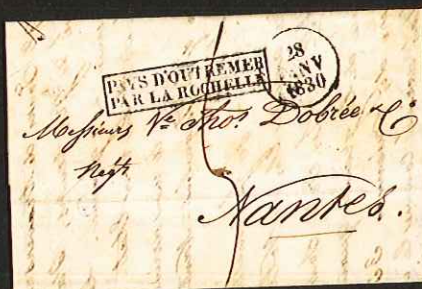 PAYS D'OUTREMER
PAR LA ROCHELLE
28
JANV
1830
5
Messieurs Ve Thos. Dobrée & Co
Negts
Nantes.